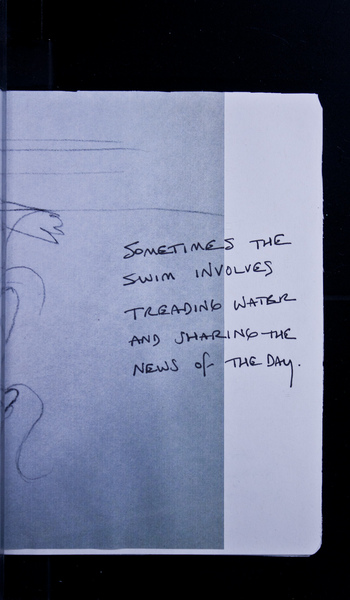 SOMETIMES THE
SWIM INVOLVES
TREADING WATER
AND SHARING THE
NEWS of THE DAY.